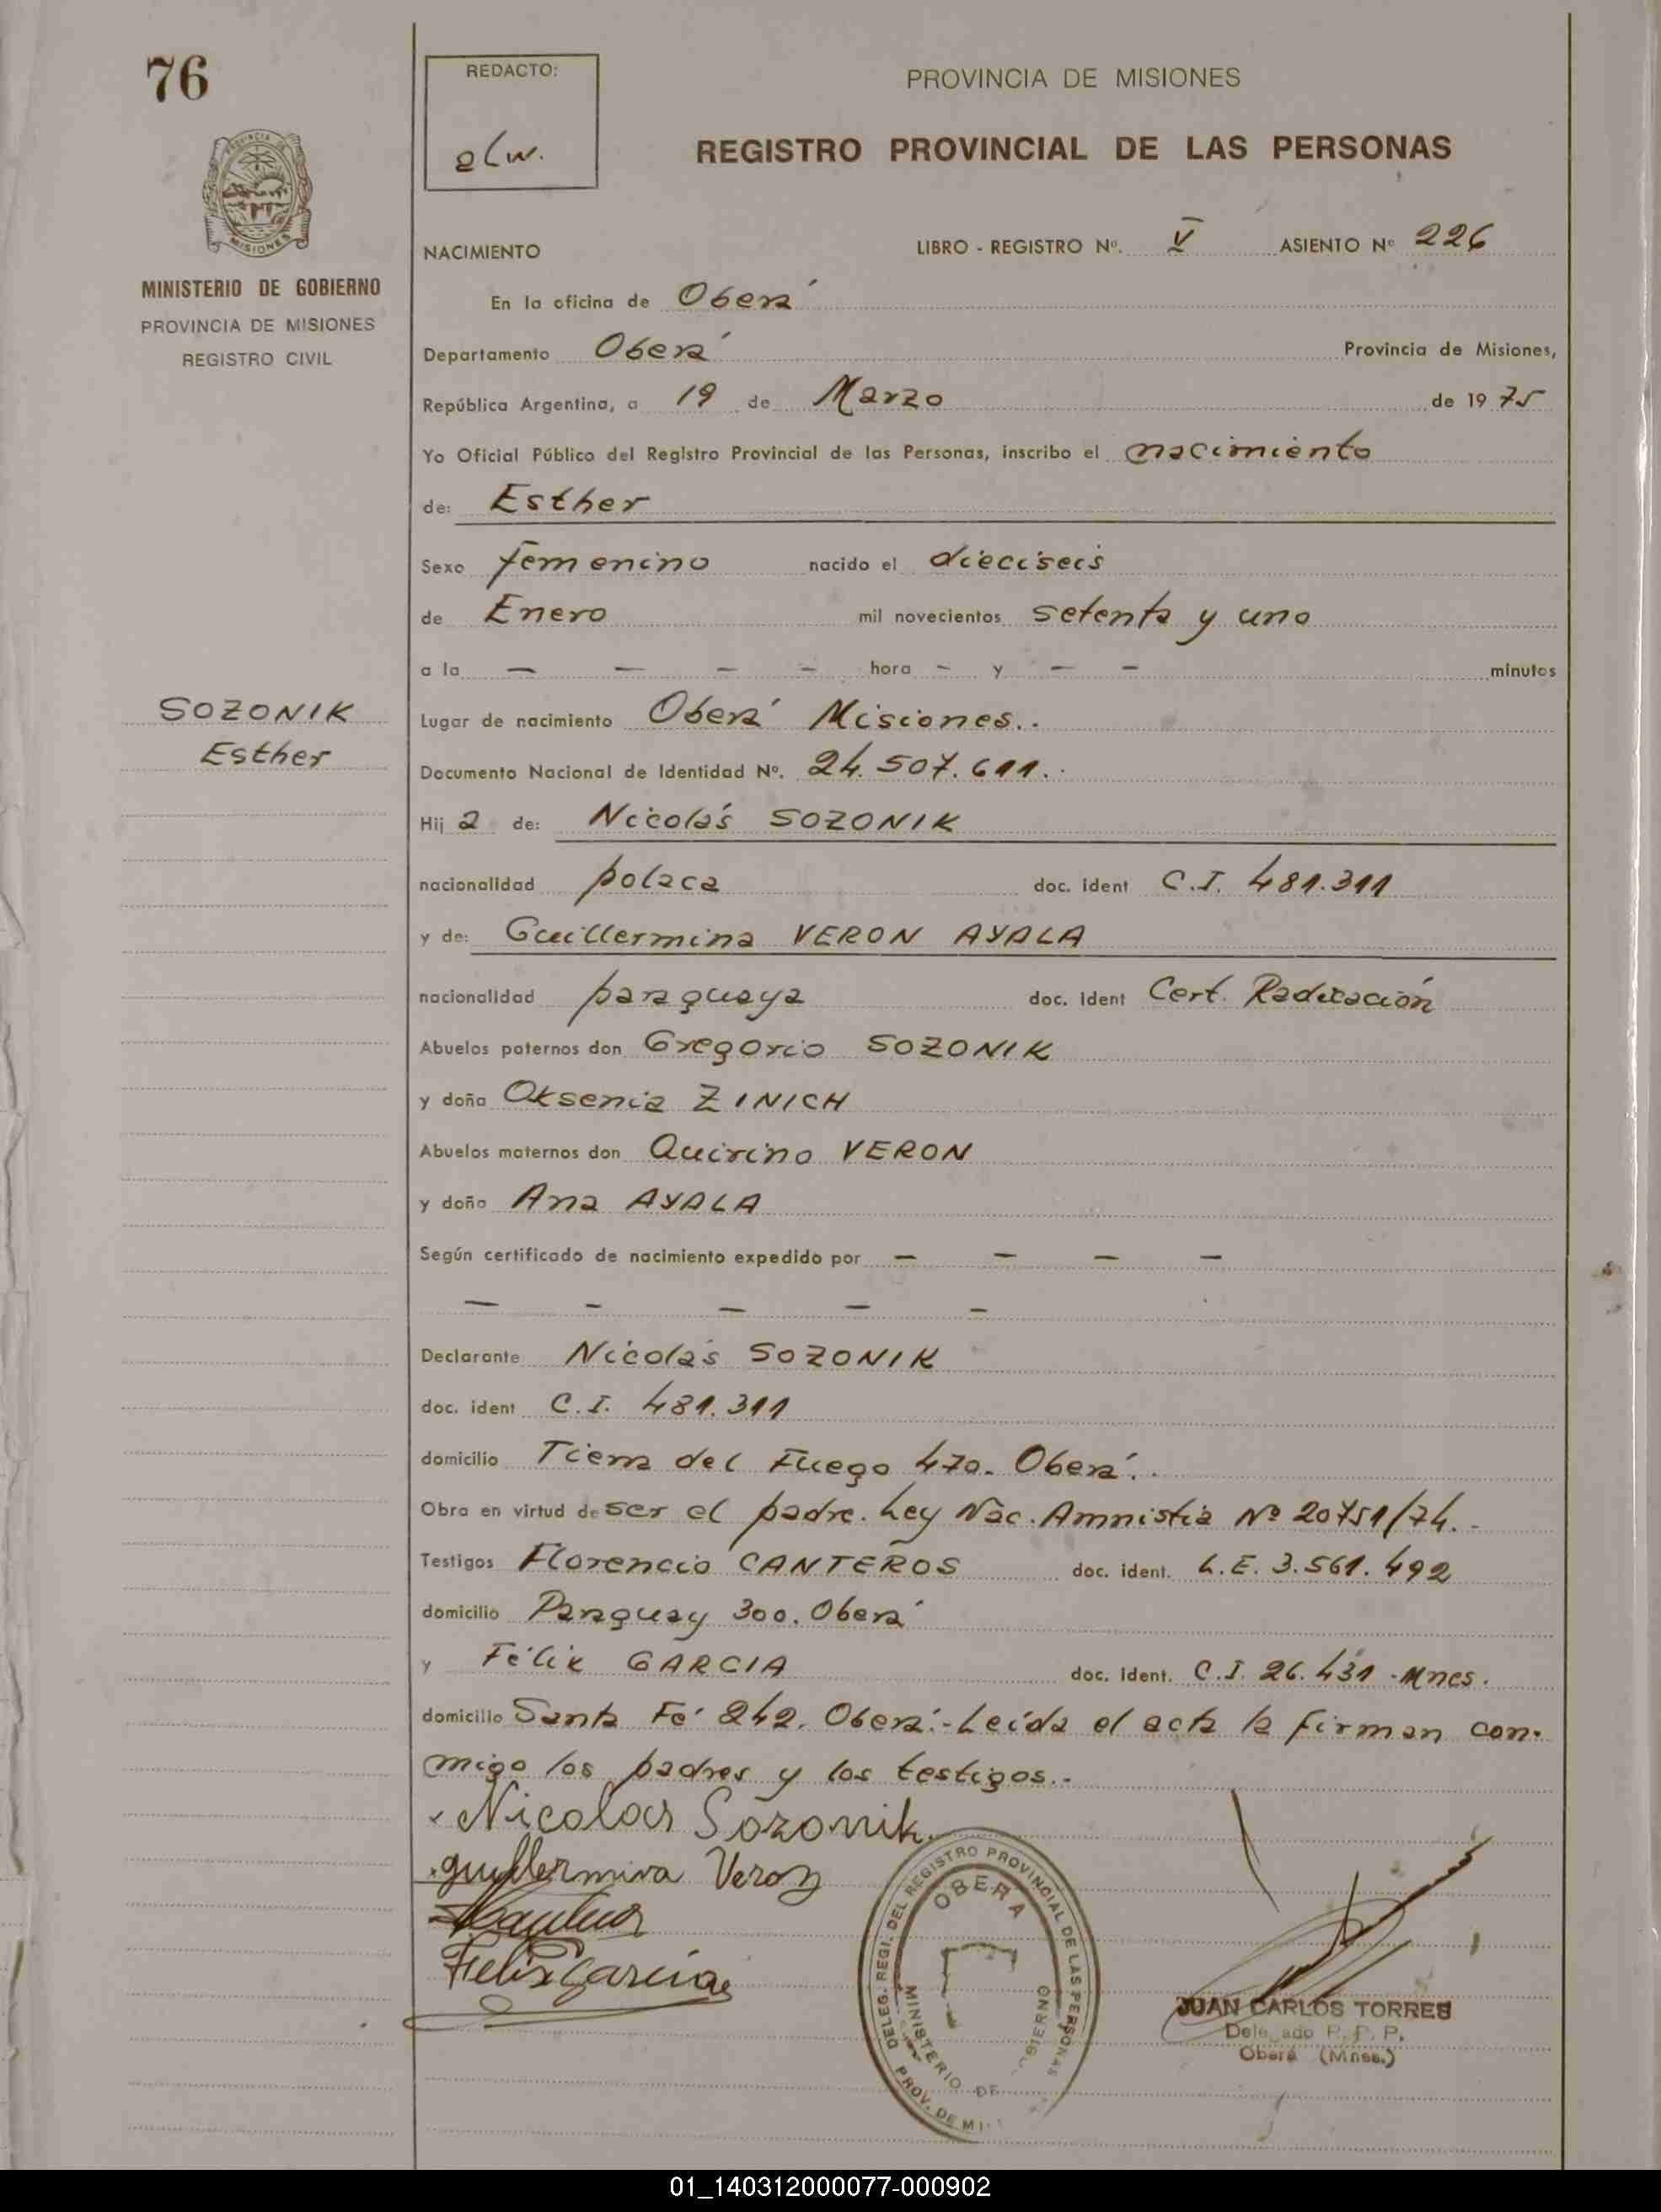 76
REDACTO:
elw.
PROVINCIA DE MISIONES
REGISTRO PROVINCIAL DE LAS PERSONAS
PROVINCIA
MISIONES
MINISTERIO DE GOBIERNO
PROVINCIA DE MISIONES
REGISTRO CIVIL
NACIMIENTO LIBRO - REGISTRO Nº. V ASIENTO Nº 226
En la oficina de Oberá
Departamento Oberá Provincia de Misiones,
República Argentina, a 19 de Marzo de 1975
Yo Oficial Público del Registro Provincial de las Personas, inscribo el nacimiento
de: Esther
Sexo femenino nacido el dieciseis
de Enero mil novecientos setenta y uno
a la — — — — hora — y — — minutos
SOZONIK
Esther
Lugar de nacimiento Oberá Misiones..
Documento Nacional de Identidad Nº. 24.507.611.
Hija de: Nicolás SOZONIK
nacionalidad polaca doc. ident C.I. 481.311
y de: Guillermina VERON AYALA
nacionalidad paraguaya doc. ident Cert. Radicación
Abuelos paternos don Gregorio SOZONIK
y doña Oksenia ZINICH
Abuelos maternos don Quirino VERON
y doña Ana AYALA
Según certificado de nacimiento expedido por — — — —
— — — — —
Declarante Nicolás SOZONIK
doc. ident C.I. 481.311
domicilio Tierra del Fuego 470. Oberá.
Obra en virtud de ser el padre. Ley Nac. Amnistia Nº 20751/74.-
Testigos Florencio CANTEROS doc. ident. L.E. 3.561.492
domicilio Paraguay 300. Oberá
y Félix GARCIA doc. ident. C.I. 26.431 -Mnes.
domicilio Santa Fé 242. Oberá.- Leída el acta la firman con-
migo los padres y los testigos.-
Nicolas Sozonik
guillermina Veron
Felix Garcia
DELEG. REGI. DEL REGISTRO PROVINCIAL DE LAS PERSONAS
OBERA
MINISTERIO DE GOBIERNO
PROV. DE MI
JUAN CARLOS TORRES
Delegado R. P. P.
Oberá (Mnes.)
01_140312000077-000902